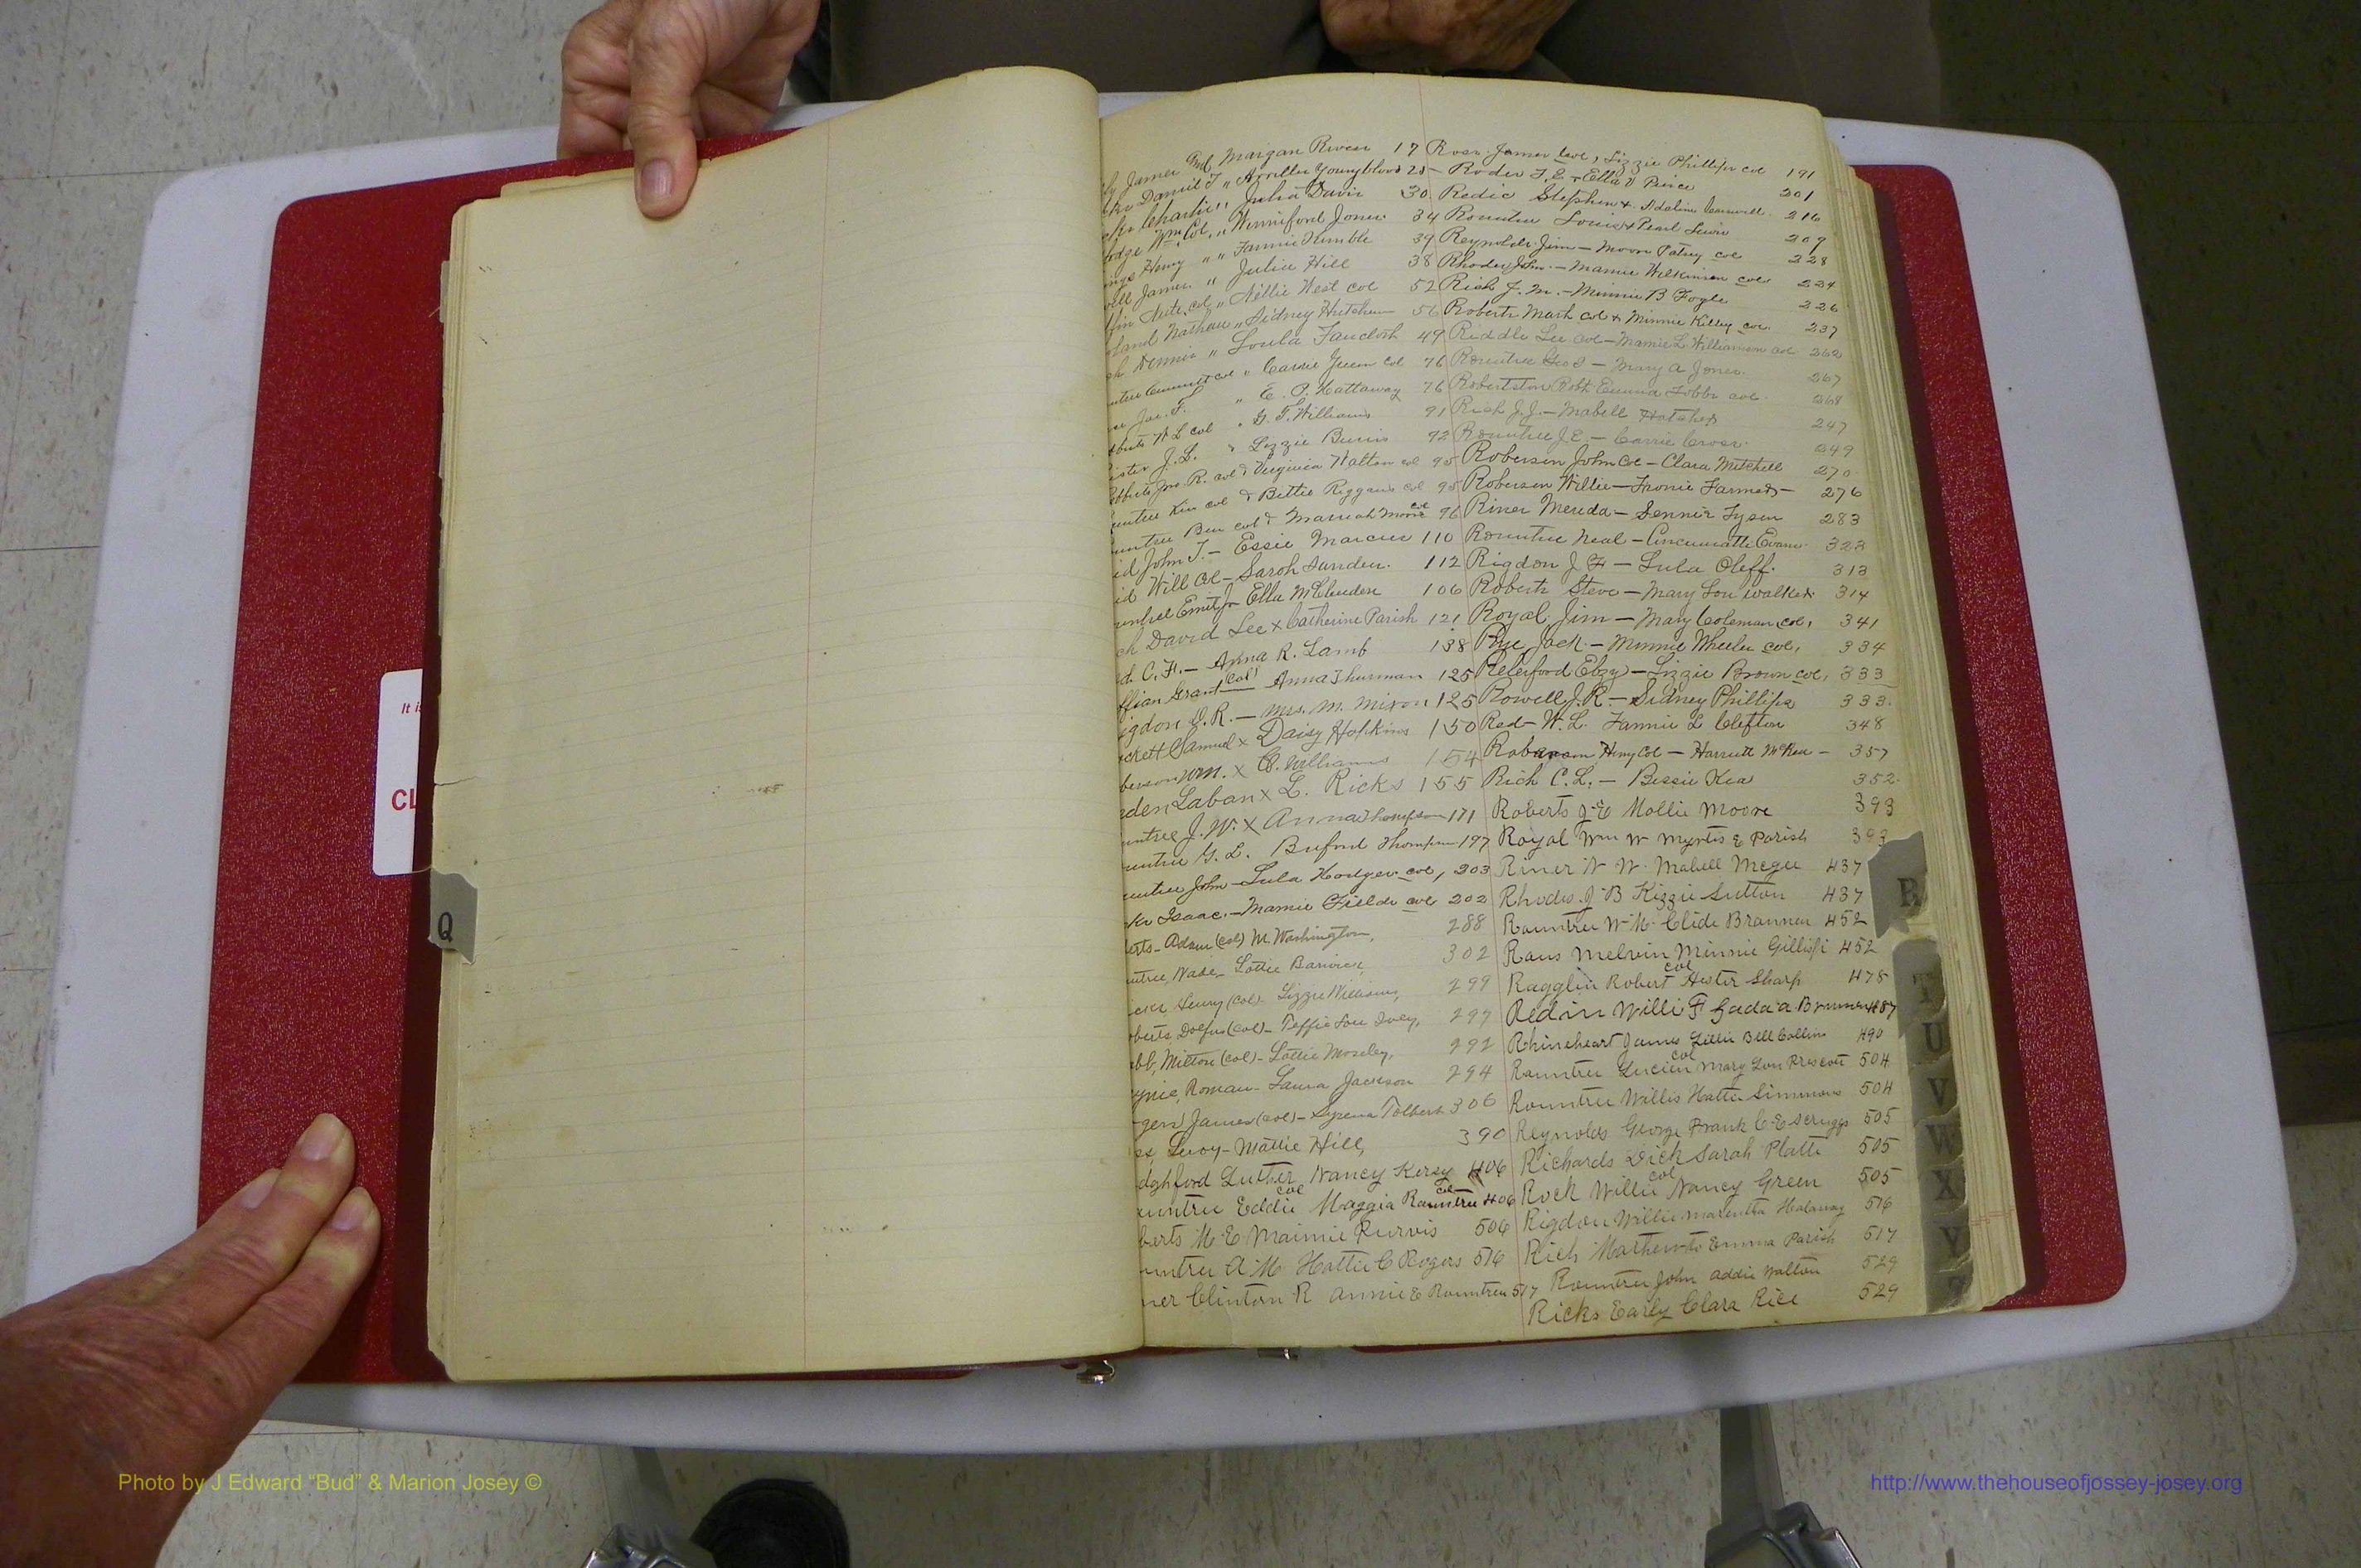 ly James and Margan Rivers 17
Daniel J " Arrilla Youngblood 25
Charlie " Julia Davis 30
Wm Col " Winniford Jones 34
Henry " " Fannie Kimble 39
James " Julia Hill 38
Nute col " Nellie West col 52
land Nathan " Sidney Hutchen 56
Dennis " Loula Faucloth 49
" Carrie Green col 76
Jas. F. " E. P. Hattaway 76
W L col " G. T. Williams 91
J. L. " Lizzie Burris 92
Jno. R. col & Virginia Walton col 95
untree Kin col & Bettie Riggans col 95
untree Ben col & Mariah Moore col 96
id John T. - Essie Marcus 110
id Will Col - Sarah Sanders 112
Emit Jr Ella McLenden 106
ch David Lee x Catherine Parish 121
d. C. H. - Anna R. Lamb 138
ffian Grant Col - Anna Thurman 125
igdon D. R. - Mrs. M. Mixon 125
ckett Samuel x Daisy Hopkins 150
berson Wm. x C. Williams 154
den Laban x L. Ricks 155
untree J. W. x Anna Thompson 171
untree G. L. Buford Thompson 197
untree John - Lula Hodges col, 203
ks Isaac. - Mamie Fields col 202
erts - Adam (Col) M. Washington, 288
untree, Wade - Lottie Barwick, 302
icks, Henry (Col) - Lizzie Williams, 299
oberts, Dolfus (Col) - Teffie Lou Ivey, 297
abb, Milton (Col) - Lottie Mosely, 292
Roman - Laura Jackson 294
gers James (Col) - Syrena Tolbert 306
ss Leroy - Mattie Hill, 390
dghford Luther Nancy Kersey 406
untree Eddie col Maggia Rauntree col 406
berts M E Maimie Purvis 506
untree A M Hattie C Rogers 516
ner Clinton R Annie E Rountree 517
Ross James Col, Lizzie Phillips col 191
Roder J. E. & Ella V Pierce 201
Redic Stephen & Adeline 216
Rountree Louis & Pearl Lewis 209
Reynolds Jim - Moore Patsy col 228
Rhodes John - Mamie Wilkinson col 234
Rich J. M. - Minnie B Fogle 226
Roberts Mash col & Minnie Killey col. 237
Riddle Lee col - Mamie L. Williamson col 262
Rountree Geo S - Mary A Jones. 267
Robertston Robt Emma Tobbs col. 268
Rich J. J. - Mabell Hatcher 247
Rountree J. E. - Carrie Cross. 249
Roberson John Col - Clara Mitchell 270
Roberson Willie - Fronie Farmer - 276
Riner Meuda - Sennie Tyson 283
Rountree Neal - Cincinnatti Evans 323
Rigdon J F - Lula Oliff. 313
Roberts Steve - Mary Lou Walker 314
Royal Jim - Mary Coleman col, 341
Rye Jack - Minnie Wheeler col, 334
Releiford Ebzy - Lizzie Brown col, 333
Rowell J. R. - Sidney Phillips 333.
Red - W. L. Fannie L Clifton 348
Robarson Heny Col - Harriett McKea - 357
Rich C. L. - Bessie Kea 352.
Roberts J E Mollie Moore 393
Royal Wm W Myrtis E Parish 393
Riner N W. Mabell Megee 437
Rhodes J B Kizzie Sutton 437
Rauntree W M. Clide Brannen 452
Raus Melvin Minnie Gillispi 452
Ragglin Robert col Hester Sharp 478
Redin Willi F Gada a. Brunner 487
Rhineheart James Lillie Bell Collins 490
Rauntree Lucien col Mary Lou Prescott 504
Rountree Willis Hattie Simmons 504
Reynolds George Frank C E Scruggs 505
Richards Dick Sarah Platte 505
Rock Willie col Nancy Green 505
Rigdon Willie Marentha Holoway 516
Rich Mathew to Emma Parish 517
Rountree John Addie Walton 529
Ricks Early Clara Rice 529
It is
CL
Q
R
T
U
V
W
X
Y
Photo by J Edward “Bud” & Marion Josey ©
http://www.thehouseofjossey-josey.org